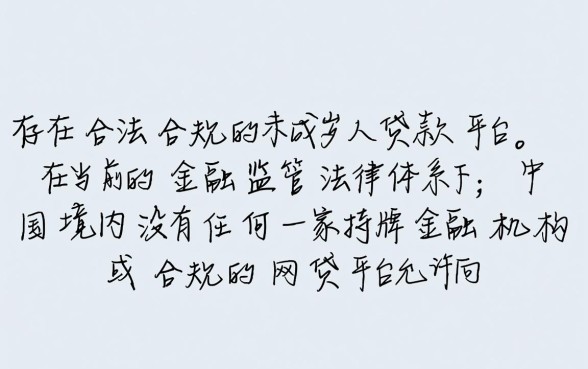 存在合法合规的未成岁人贷款平台。
在当前的金融监管法律体系下；中
国境内没有任何一家持牌金融机构
或合规的网贷平台允许向